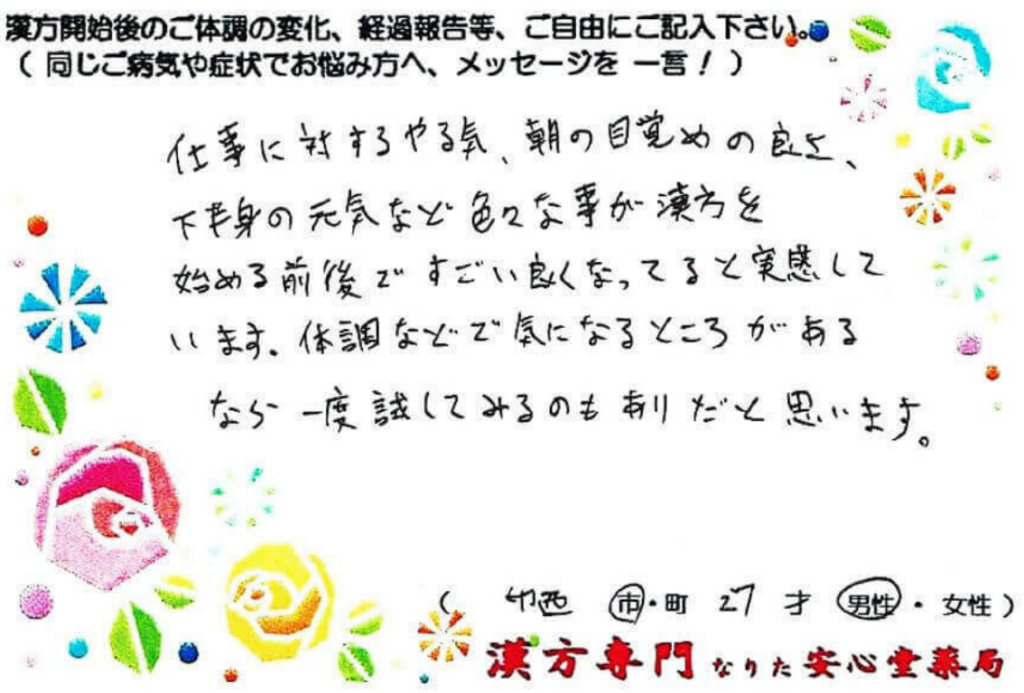 漢方開始後のご体調の変化、経過報告等、ご自由にご記入下さい。
（ 同じご病気や症状でお悩み方へ、メッセージを 一言！ ）
仕事に対するやる気、朝の目覚めの良さ、
下半身の元気など色々な事が漢方を
始める前後ですごい良くなってると実感して
います。体調などで気になるところがある
なら一度試してみるのもありだと思います。
（ 印西 市・町 27 才 男性・女性 ）
漢方専門 なりた 安心堂薬局